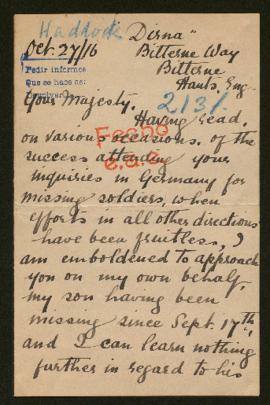 Haddock "Dirna"
Oct. 27/16 Bitterne Way
Pedir informes Bitterne
que se hace as: Hants, Eng.
2131
Your Majesty.
Having read,
on various occasions, of the
Fecho
success attending your
inquiries in Germany for
missing soldiers, when
efforts in all other directions
have been fruitless, I
am emboldened to approach
you on my own behalf,
my son having been
missing since Sept. 17th,
and I can learn nothing
further in regard to his